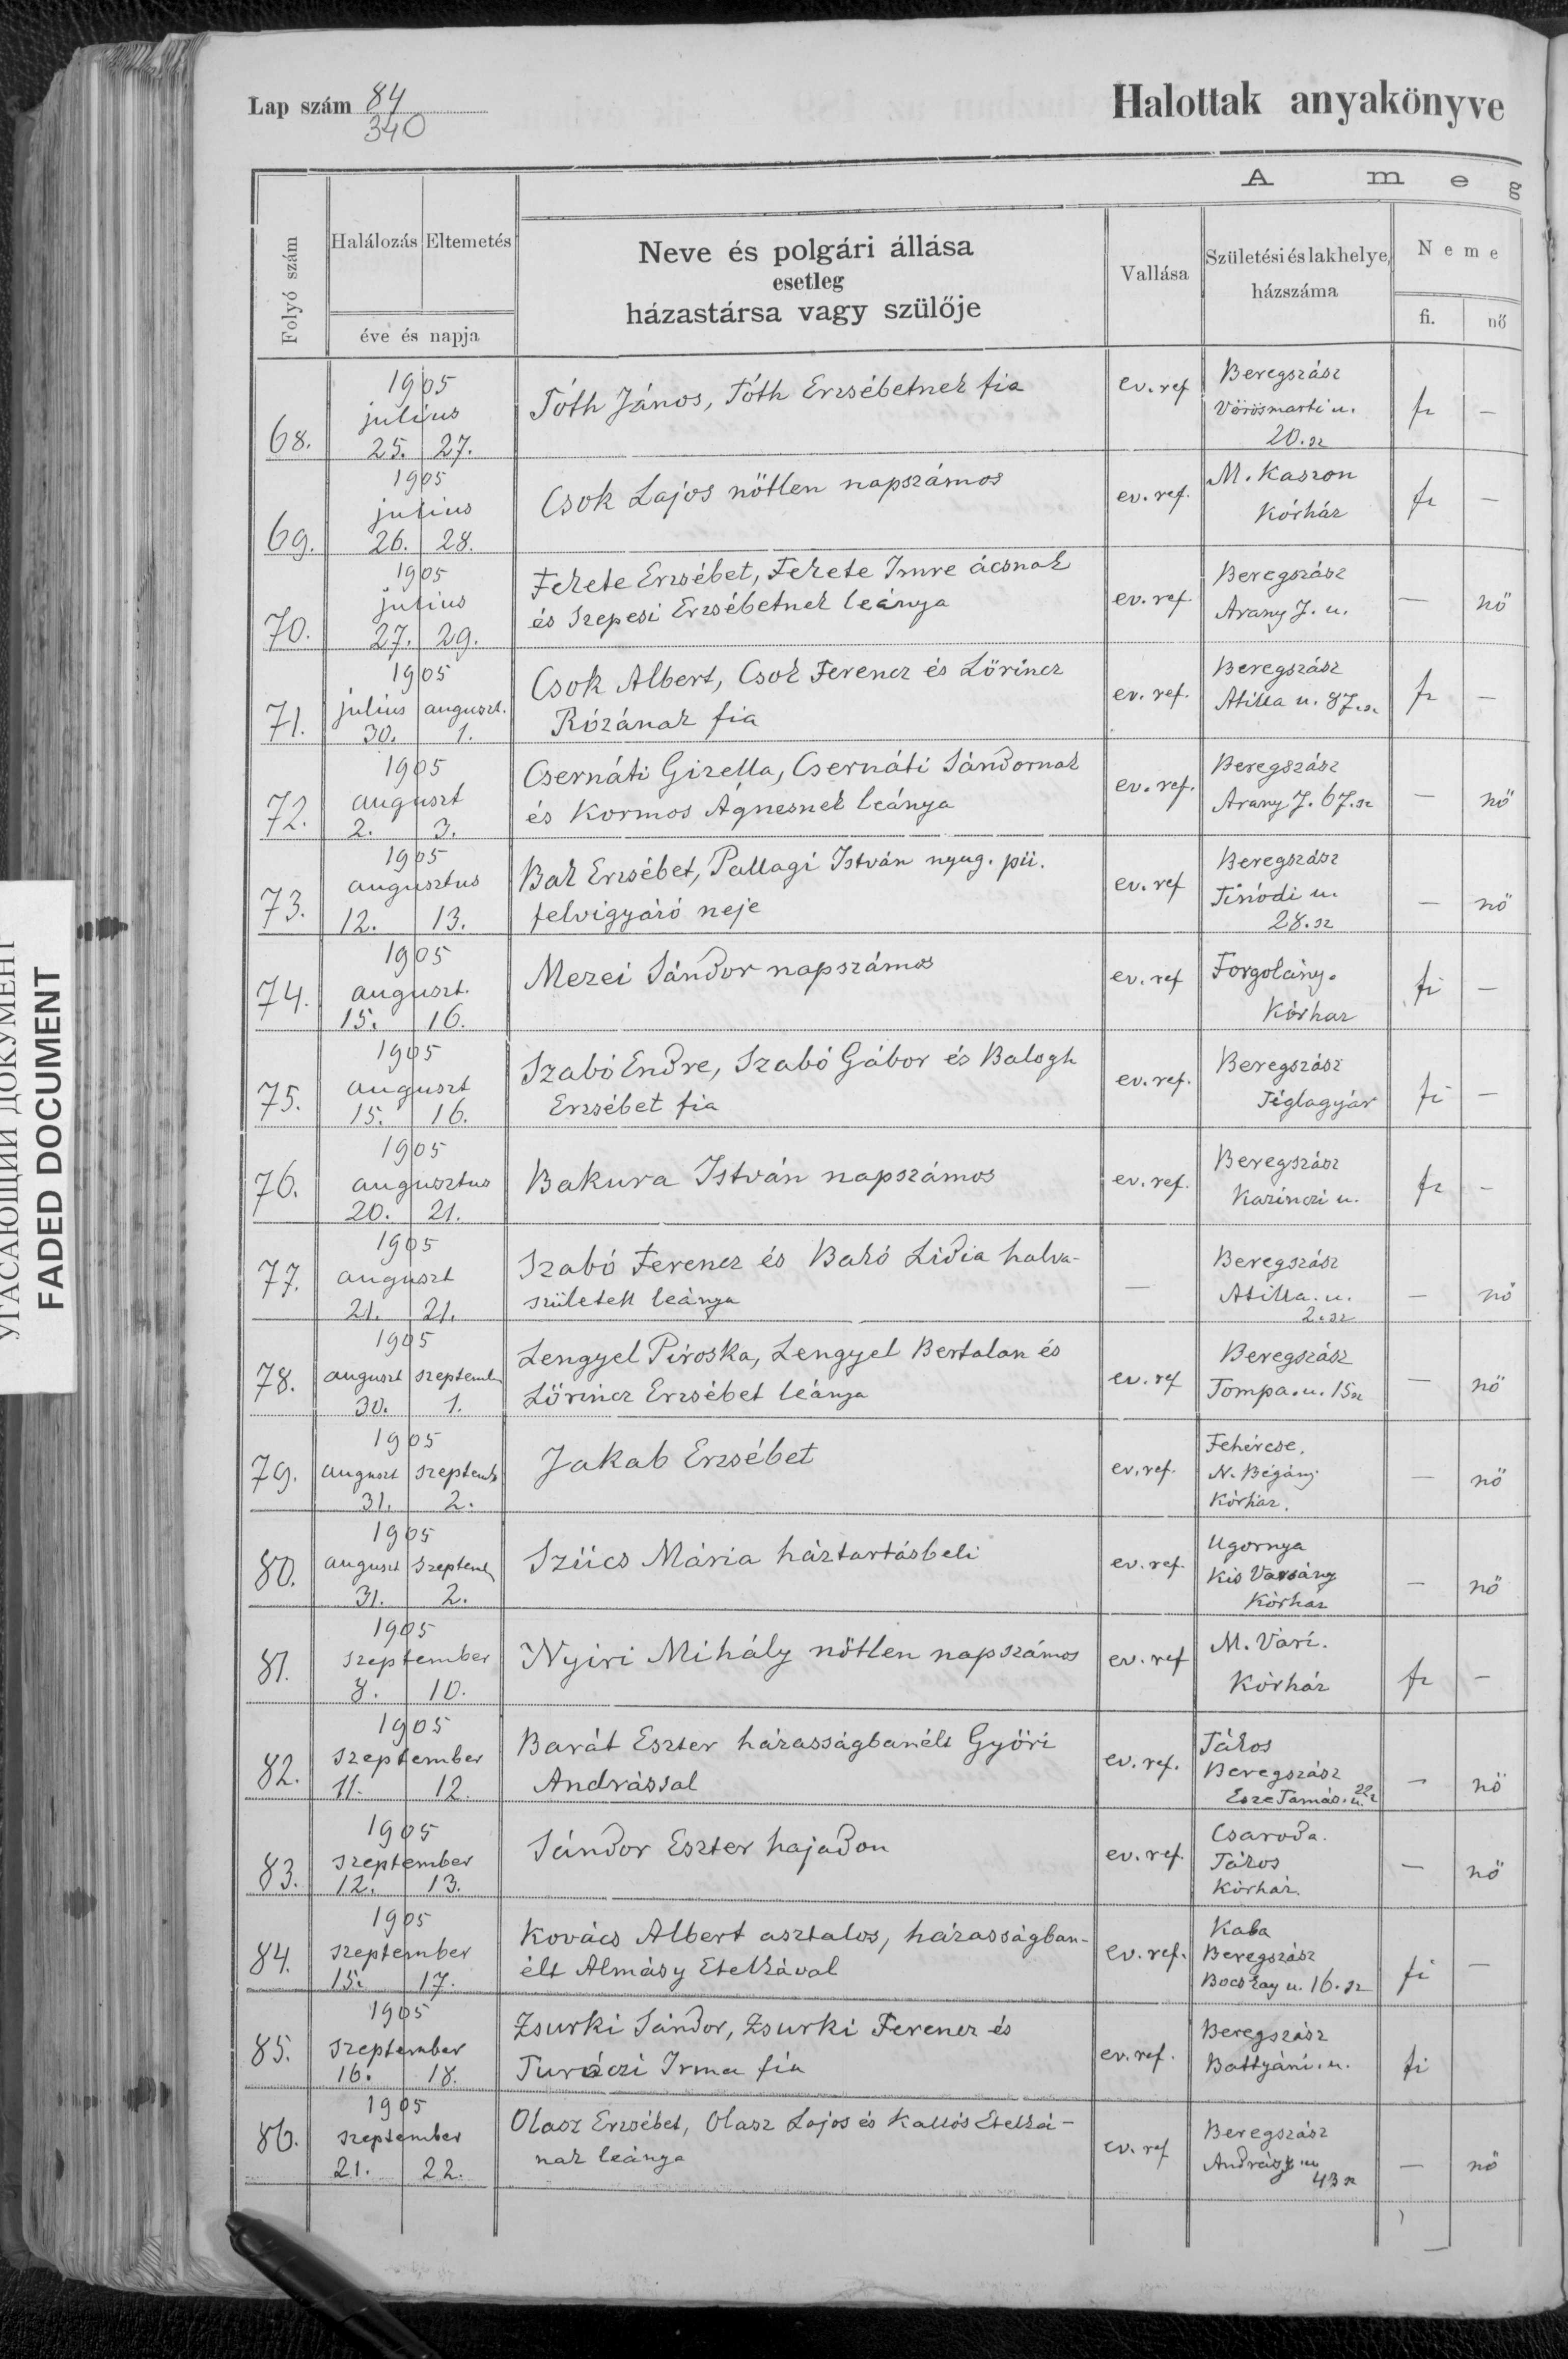 Lap szám 84
340
Halottak anyakönyve
A m e g
Folyó szám
Halálozás Eltemetés
éve és napja
Neve és polgári állása
esetleg
házastársa vagy szülője
Vallása
Születési és lakhelye,
házszáma
Neme
fi. nő
1905
68. julius 25. 27.
Tóth János, Tóth Erzsébetnek fia
ev. ref
Beregszász
Vörösmarti u.
20. sz
fi —
1905
69. julius 26. 28.
Csok Lajos nőtlen napszámos
ev. ref.
M. Kaszon
Kórház
fi —
1905
70. julius 27. 29.
Fekete Erzsébet, Fekete Imre ácsnak
és Szepesi Erzsébetnek leánya
ev. ref.
Beregszász
Arany J. u.
— nő
1905
71. julius 30. auguszt. 1.
Csok Albert, Csok Ferencz és Lőrincz
Rózának fia
ev. ref.
Beregszász
Atilla u. 87. sz
fi —
1905
72. auguszt 2. 3.
Csernáti Gizella, Csernáti Sándornak
és Kormos Ágnesnek leánya
ev. ref.
Beregszász
Arany J. 67. sz
— nő
1905
73. augusztus 12. 13.
Bak Erzsébet, Pallagi István nyug. pü.
felvigyázó neje
ev. ref
Beregszász
Tinódi u.
28. sz
— nő
1905
74. auguszt. 15. 16.
Mezei Sándor napszámos
ev. ref
Forgolány.
Kórhaz
fi —
1905
75. auguszt 15. 16.
Szabó Endre, Szabó Gábor és Balogh
Erzsébet fia
ev. ref.
Beregszász
Téglagyár
fi —
1905
76. augusztus 20. 21.
Bakura István napszámos
ev. ref.
Beregszász
Kazinczi u.
fi -
1905
77. auguszt 21. 21.
Szabó Ferencz és Bakó Lidia halva-
született leánya
—
Beregszász
Atilla. u.
2. sz
— nő
1905
78. auguszt 30. szeptemb 1.
Lengyel Piroska, Lengyel Bertalan és
Lőrincz Erzsébet leánya
ev. ref
Beregszász
Tompa. u. 15 sz
— nő
1905
79. auguszt 31. szeptemb 2.
Jakab Erzsébet
ev. ref.
Fehércse.
N. Bégány
Kórház.
— nő
1905
80. auguszt 31. szeptemb 2.
Szücs Mária háztartásbeli
ev. ref.
Ugornya
Kis Varsány
Kórhaz
— nő
1905
81. szeptember 8. 10.
Nyiri Mihály nőtlen napszámos
ev. ref
M. Vari.
Kórház
fi —
1905
82. szeptember 11. 12.
Barát Eszter házasságbanélt Győri
Andrással
ev. ref.
Tákos
Beregszász
Esze Tamás. u. 22
— nő
1905
83. szeptember 12. 13.
Sándor Eszter hajadon
ev. ref.
Csaroda.
Tákos
Kórház.
— nő
1905
84. szeptember 15. 17.
Kovács Albert asztalos, házasságban-
élt Almásy Etelkával
ev. ref.
Kaba
Beregszász
Bocskay u. 16. sz
fi —
1905
85. szeptember 16. 18.
Zsurki Sándor, Zsurki Ferencz és
Turóczi Irma fia
ev. ref.
Beregszász
Battyáni. u.
fi
1905
86. szeptember 21. 22.
Olasz Erzsébet, Olasz Lajos és Kallós Etelká-
nak leánya
ev. ref
Beregszász
Andrásy u
43 sz
— nő
УГАСАЮЩИЙ ДОКУМЕНТ
FADED DOCUMENT